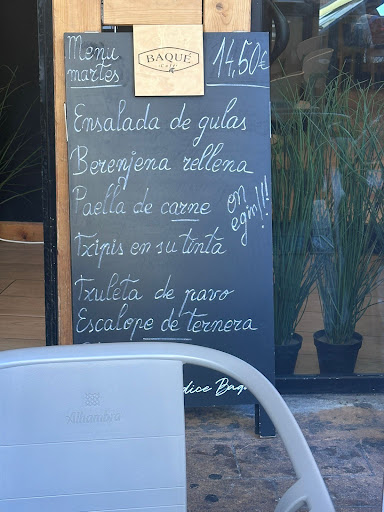 Menu
martes
BAQUÉ
Café
14,50€
Ensalada de gulas
Berenjena rellena
Paella de carne
Txipis en su tinta
on
egin!!!
Txuleta de pavo
Escalope de ternera
dice Baq
Alhambra